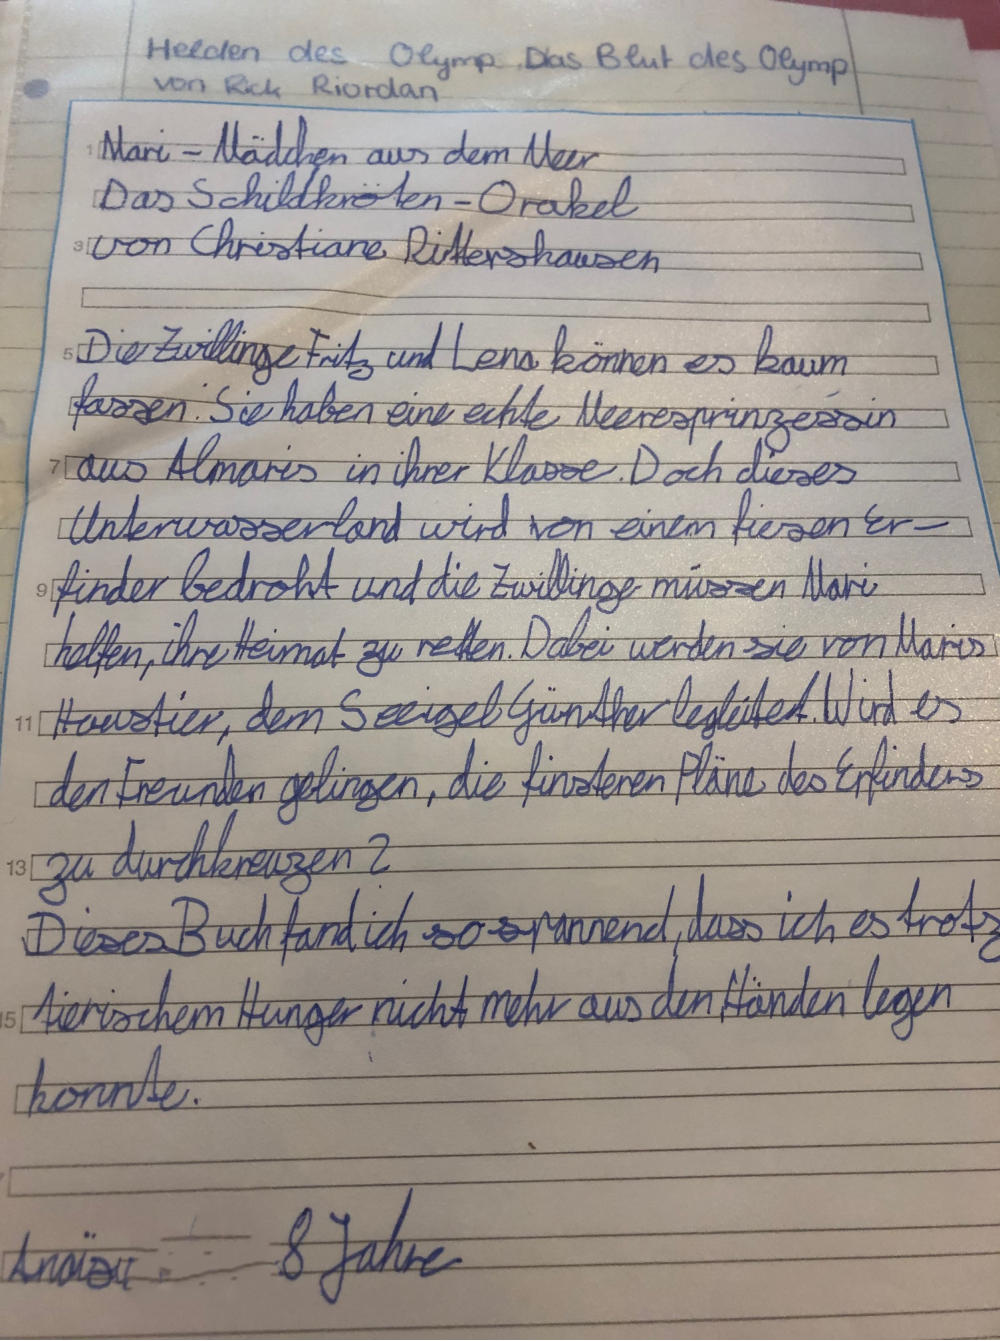 Helden des Olymp. Das Blut des Olymp
von Rick Riordan
1 Mari - Mädchen aus dem Meer
Das Schildkröten - Orakel
3 von Christiane Rittershausen
5 Die Zwillinge Fritz und Lena können es kaum
fassen. Sie haben eine echte Meeresprinzessin
7 aus Almaris in ihrer Klasse. Doch dieses
Unterwasserland wird von einem fiesen Er-
9 finder bedroht und die Zwillinge müssen Mari
helfen, ihre Heimat zu retten. Dabei werden sie von Maris
11 Haustier, dem Seeigel Günther begleitet. Wird es
den Freunden gelingen, die finsteren Pläne des Erfinders
13 zu durchkreuzen?
Dieses Buch fand ich so spannend, dass ich es trotz
15 tierischem Hunger nicht mehr aus den Händen legen
konnte.
8 Jahre